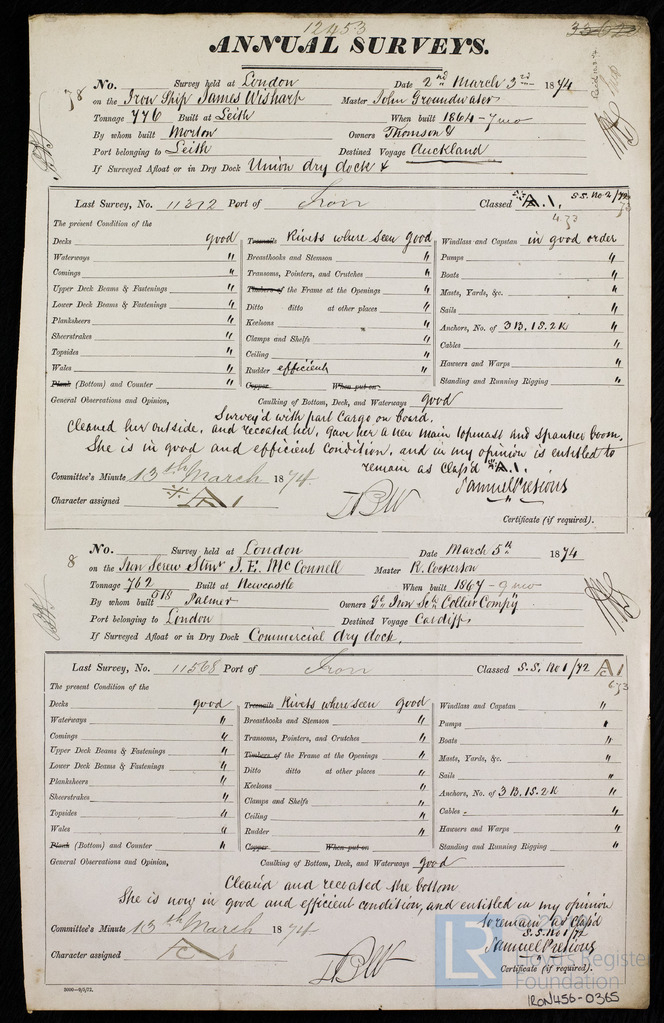 12453
33623
ANNUAL SURVEYS.
No. Survey held at London Date 2nd March 3rd 1874
38 on the Iron Ship James Wishart Master John Groundwater
Tonnage 776 Built at Leith When built 1864 - 7mo
By whom built Morton Owners Thomson &
Port belonging to Leith Destined Voyage Auckland
If Surveyed Afloat or in Dry Dock Union dry dock &
Last Survey, No. 11312 Port of Iron Classed A.1. S.S. No 2/72
4.73
The present Condition of the
Decks good Treenails Rivets where seen good Windlass and Capstan in good order
Waterways " Breasthooks and Stemson " Pumps "
Comings " Transoms, Pointers, and Crutches " Boats "
Upper Deck Beams & Fastenings " Timbers of the Frame at the Openings " Masts, Yards, &c. "
Lower Deck Beams & Fastenings " Ditto ditto at other places " Sails "
Planksheers " Keelsons " Anchors, No. of 3B. 1S. 2K "
Sheerstrakes " Clamps and Shelfs " Cables "
Topsides " Ceiling " Hawsers and Warps "
Wales " Rudder efficient Standing and Running Rigging "
Plank (Bottom) and Counter " Copper When put on
General Observations and Opinion, Caulking of Bottom, Deck, and Waterways good
Survey'd with part Cargo on board.
Cleaned her outside, and recoated her, gave her a new main topmast and Spanker boom.
She is in good and efficient condition, and in my opinion is entitled to
remain as Class'd A.1.
Committee's Minute 13th March 1874
Samuel Presious
Character assigned A 1
Certificate (if required).
No. Survey held at London Date March 5th 1874
8 on the Iron Screw Stmr J. E. McConnell Master R. Cockerton
Tonnage 762 Built at Newcastle When built 1867 - 9mo
By whom built Palmer Owners Gl Iron Sc Collier Compy
518
Port belonging to London Destined Voyage Cardiff
If Surveyed Afloat or in Dry Dock Commercial dry dock.
Last Survey, No. 11568 Port of Iron Classed S.S. No 1/72 A 1
6.73
The present Condition of the
Decks good Treenails Rivets where seen good Windlass and Capstan "
Waterways " Breasthooks and Stemson " Pumps "
Comings " Transoms, Pointers, and Crutches " Boats "
Upper Deck Beams & Fastenings " Timbers of the Frame at the Openings " Masts, Yards, &c. "
Lower Deck Beams & Fastenings " Ditto ditto at other places " Sails "
Planksheers " Keelsons " Anchors, No. of 3B. 1S. 2K "
Sheerstrakes " Clamps and Shelfs " Cables "
Topsides " Ceiling " Hawsers and Warps "
Wales " Rudder " Standing and Running Rigging "
Plank (Bottom) and Counter " Copper When put on
General Observations and Opinion, Caulking of Bottom, Deck, and Waterways good
Clean'd and recoated the bottom
She is now in good and efficient condition, and entitled in my opinion
to remain as Clap'd
S.S. No 1/72
Committee's Minute 13th March 1874
Samuel Presious
Character assigned
Certificate (if required).
LR
Lloyd's Register
Foundation
3000—9/5/72.
IRON456-0365